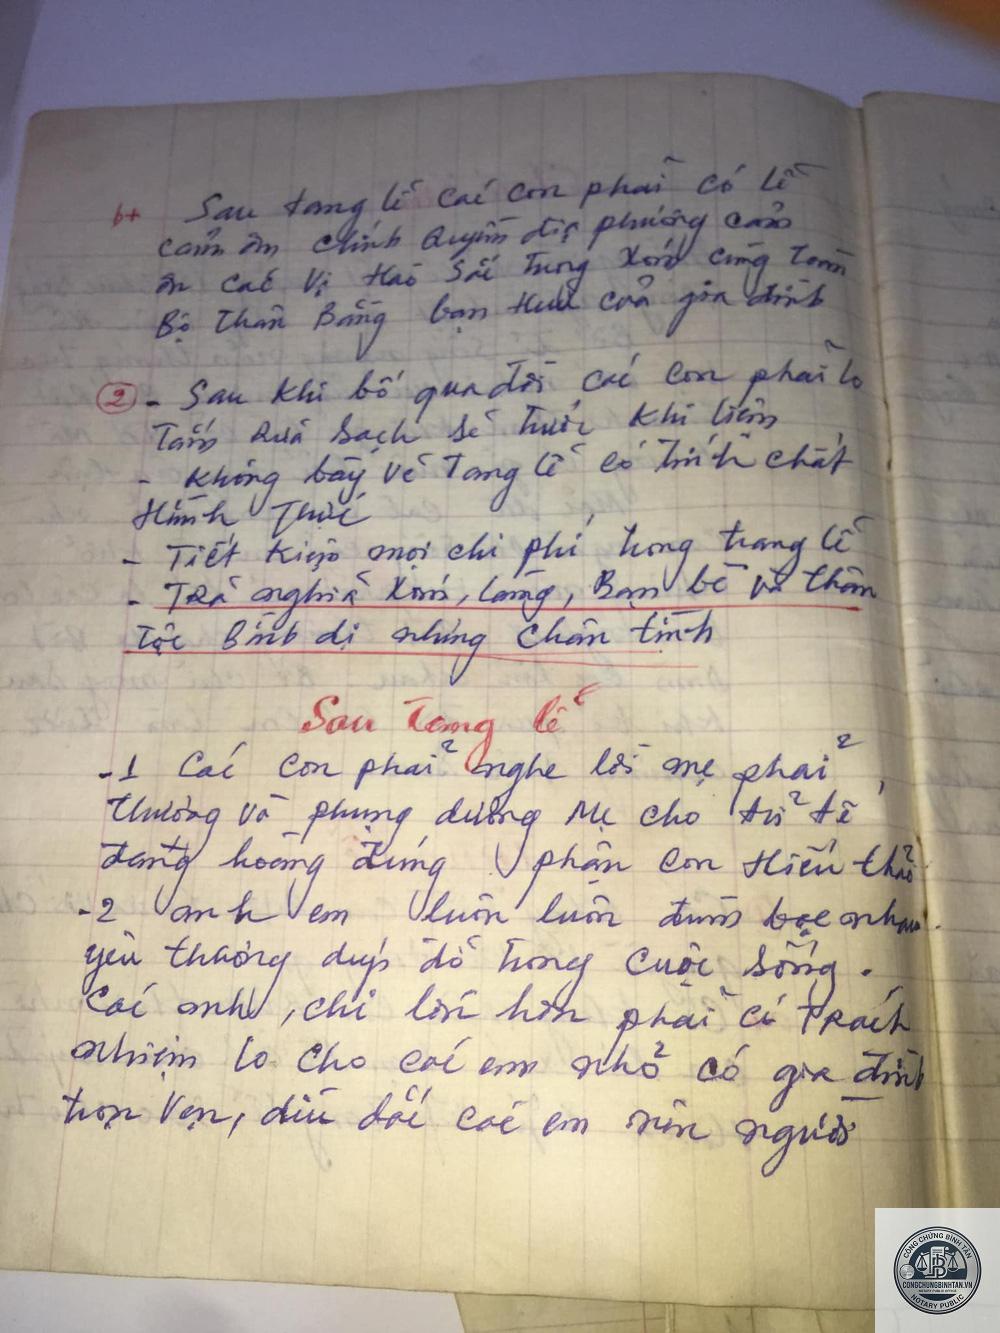 6+ Sau tang lễ các con phải có lễ
cảm ơn chính quyền địa phương cảm
ơn các vị Hào Sắc trong xóm cùng toàn
Bộ thân Bằng bạn Hữu của gia đình
2 - Sau khi bố qua đời các con phải lo
Tắm Rửa Sạch sẽ trước khi liệm
- không bầy vẽ Tang lễ có tính chất
Hình Thức
- Tiết kiệm mọi chi phí trong trang lễ
- TRả nghĩa xóm, làng, Bạn bè và thân
tộc Bình dị nhưng chân tình
Sau Tang lễ
-1 Các con phải nghe lời mẹ phải
thương và phụng dưỡng Mẹ cho tử tế
đang hoàng đúng phận con Hiếu thảo
-2 anh em luôn luôn đùm bọc nhau.
yêu thương dúp đỡ trong cuộc sống.
Các anh, chi lớn hơn phải có TRách
nhiệm lo cho các em nhỏ có gia đình
trọn vẹn, dìu dắt các em nên người
CÔNG CHỨNG BÌNH TÂN
CONGCHUNGBINHTAN.VN
NOTARY PUBLIC OFFICE
NOTARY PUBLIC